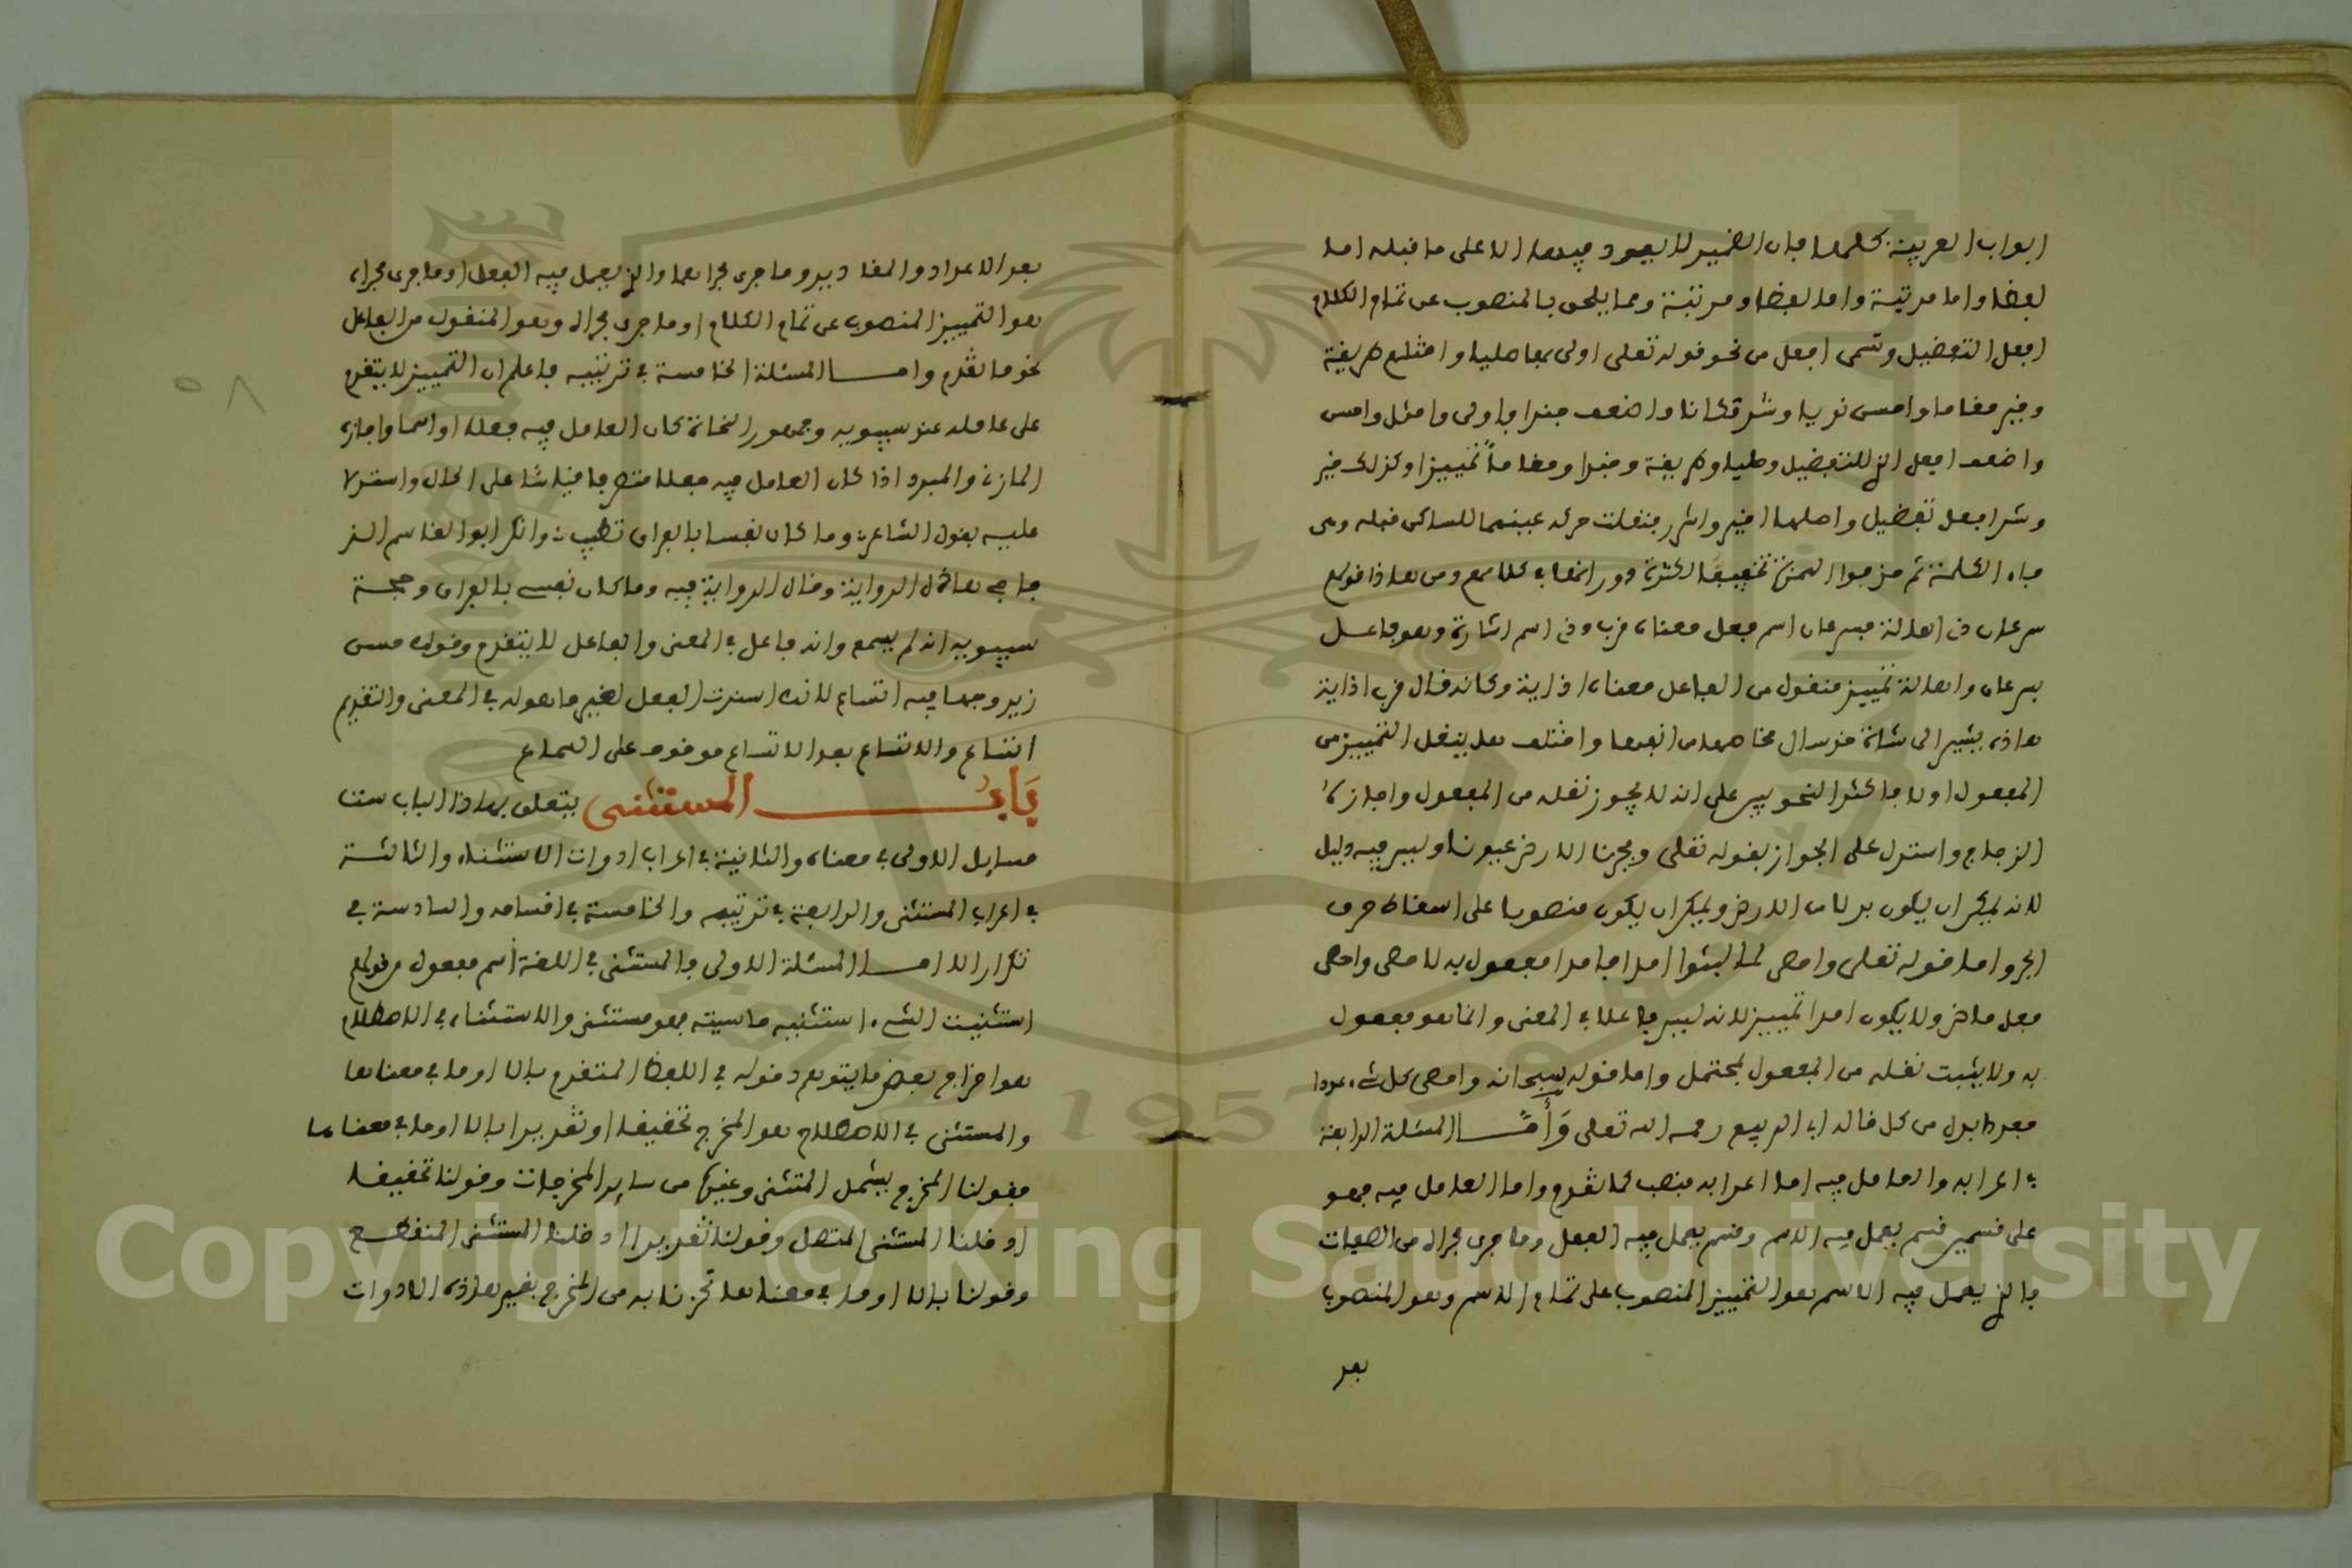 ابواب العربية كلها فان الضمير لا يعود فيها الا على ما قبله اما
لفظا واما مرتبة واما لفظا ومرتبة ومما يلحق بالمنصوب عن تمام الكلام
افعل التفضيل وتسمى افعل من نحو قوله تعلى اولى بها صليا وامثلهم طريقة
وخير مقاما واحسن نديا وشر مكانا واضعف جندا فاولى وامثل واحسن
واضعف افعل الذي للتفضيل وصليا وطريقة وجندا ومقاماً تمييزا وكذلك خير
وشر افعل تفضيل واصلهما اخير واشرر فنقلت حركة عينهما للساكن قبله وهى
فاء الكلمة ثم حذفوا الهمزة تخفيفا لكثرة دورانها في كلامهم ومن هاذا قولهم
سرعان ذى اهالة فسرعان اسم فعل معناه قرب وذى اسم اشارة وهو فاعل
بسرعان واهالة تمييز منقول من الفاعل معناه اذاية وكانه قال قرب اذاية
هاذه يشير الى شاة قد سال مخاطها من انفها واختلف هل ينقل التمييز من
المفعول اولا فاكثر النحويين على انه لا يجوز نقله من المفعول واجازه
الزجاج واستدل على الجواز بقوله تعلى وفجرنا الارض عيونا وليس فيه دليل
لانه يمكن ان يكون بدلا من الارض ويمكن ان يكون منصوبا على اسقاط حرف
الجر واما قوله تعلى واحصى لما لبثوا امدا فامدا مفعول به لاحصى واحصى
فعل ماض ولا يكون امدا تمييز لانه ليس فاعلا في المعنى وانما هو مفعول
به ولا يثبت نقله من المفعول لمحتمل واما قوله سبحانه واحصى كل شيء عددا
فعددا بدل من كل قاله ابن ابى الربيع رحمه الله تعلى وَأَمَّا المسئلة الرابعة
في اعرابه والعامل فيه اما اعرابه فنصب كما تقدم واما العامل فيه فهو
على قسمين قسم يعمل فيه الاسم وقسم يعمل فيه الفعل وما جرى مجراه من الصفات
فالذي يعمل فيه الاسم هو التمييز المنصوب على تمام الاسم وهو المنصوب
بعد
بعد الاعداد والمقادير وما جرى مجراهما والذي يعمل فيه الفعل او ما جرى مجراه
هو التمييز المنصوب عن تمام الكلام او ما جرى مجراه وهو المنقول من الفاعل
نحو ما تقدم وامـا المسئلة الخامسة في ترتيبه فاعلم ان التمييز لا يتقدم
على عامله عند سيبويه وجمهور النحاة كان العامل فيه فعلا او اسما واجازه
المازني والمبرد اذا كان العامل فيه فعلا متصرفا قياسا على الحال واستدلا
عليه بقول الشاعر وما كان نفسا بالفراق تطيب وانكر ابو القاسم الز
جاجي هاذه الرواية وقال الرواية فيه وما كان نفسي بالفراق وحجة
سيبويه انه لم يسمع وانه فاعل في المعنى والفاعل لا يتقدم وقولك حسن
زيد وجها فيه اتساع لانك اسندت الفعل لغير ما هو له في المعنى والتقديم
اتساع والاتساع بعد الاتساع موقوف على السماع
بَابُ المستثنى يتعلق بهاذا الباب ست
مسايل الاولى في معناه والثانية في اعراب ادوات الاستثناء والثالثة
في اعراب المستثنى والرابعة في ترتيبه والخامسة في اقسامه والسادسة في
تكرار الا امـا المسئلة الاولى فالمستثنى في اللغة اسم مفعول من قولهم
استثنيت الشيء استثنيه ماسيته فهو مستثنى والاستثناء في الاصطلاح
هو اخراج بعض ما يتوهم دخوله في اللفظ المتقدم بالا او ما في معناها
والمستثنى في الاصطلاح هو المخرج تحقيقا او تقديرا بالا او ما في معناها
فقولنا المخرج يشمل المستثنى وغيره من ساير المخرجات وقولنا تحقيقا
ادخلنا المستثنى المتصل وقولنا تقديرا ادخلنا المستثنى المنقطع
وقولنا بالا او ما في معناها تحرزنا به من المخرج بغير هاذه الادوات